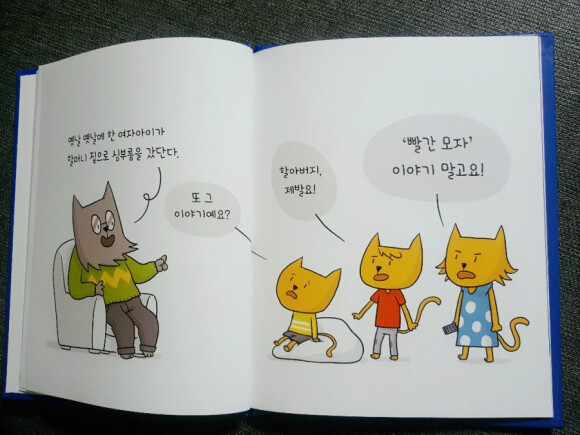 옛날 옛날에 한 여자아이가
할머니 집으로 심부름을 갔단다.
또 그
이야기예요?
할아버지,
제발요!
‘빨간 모자’
이야기 말고요!